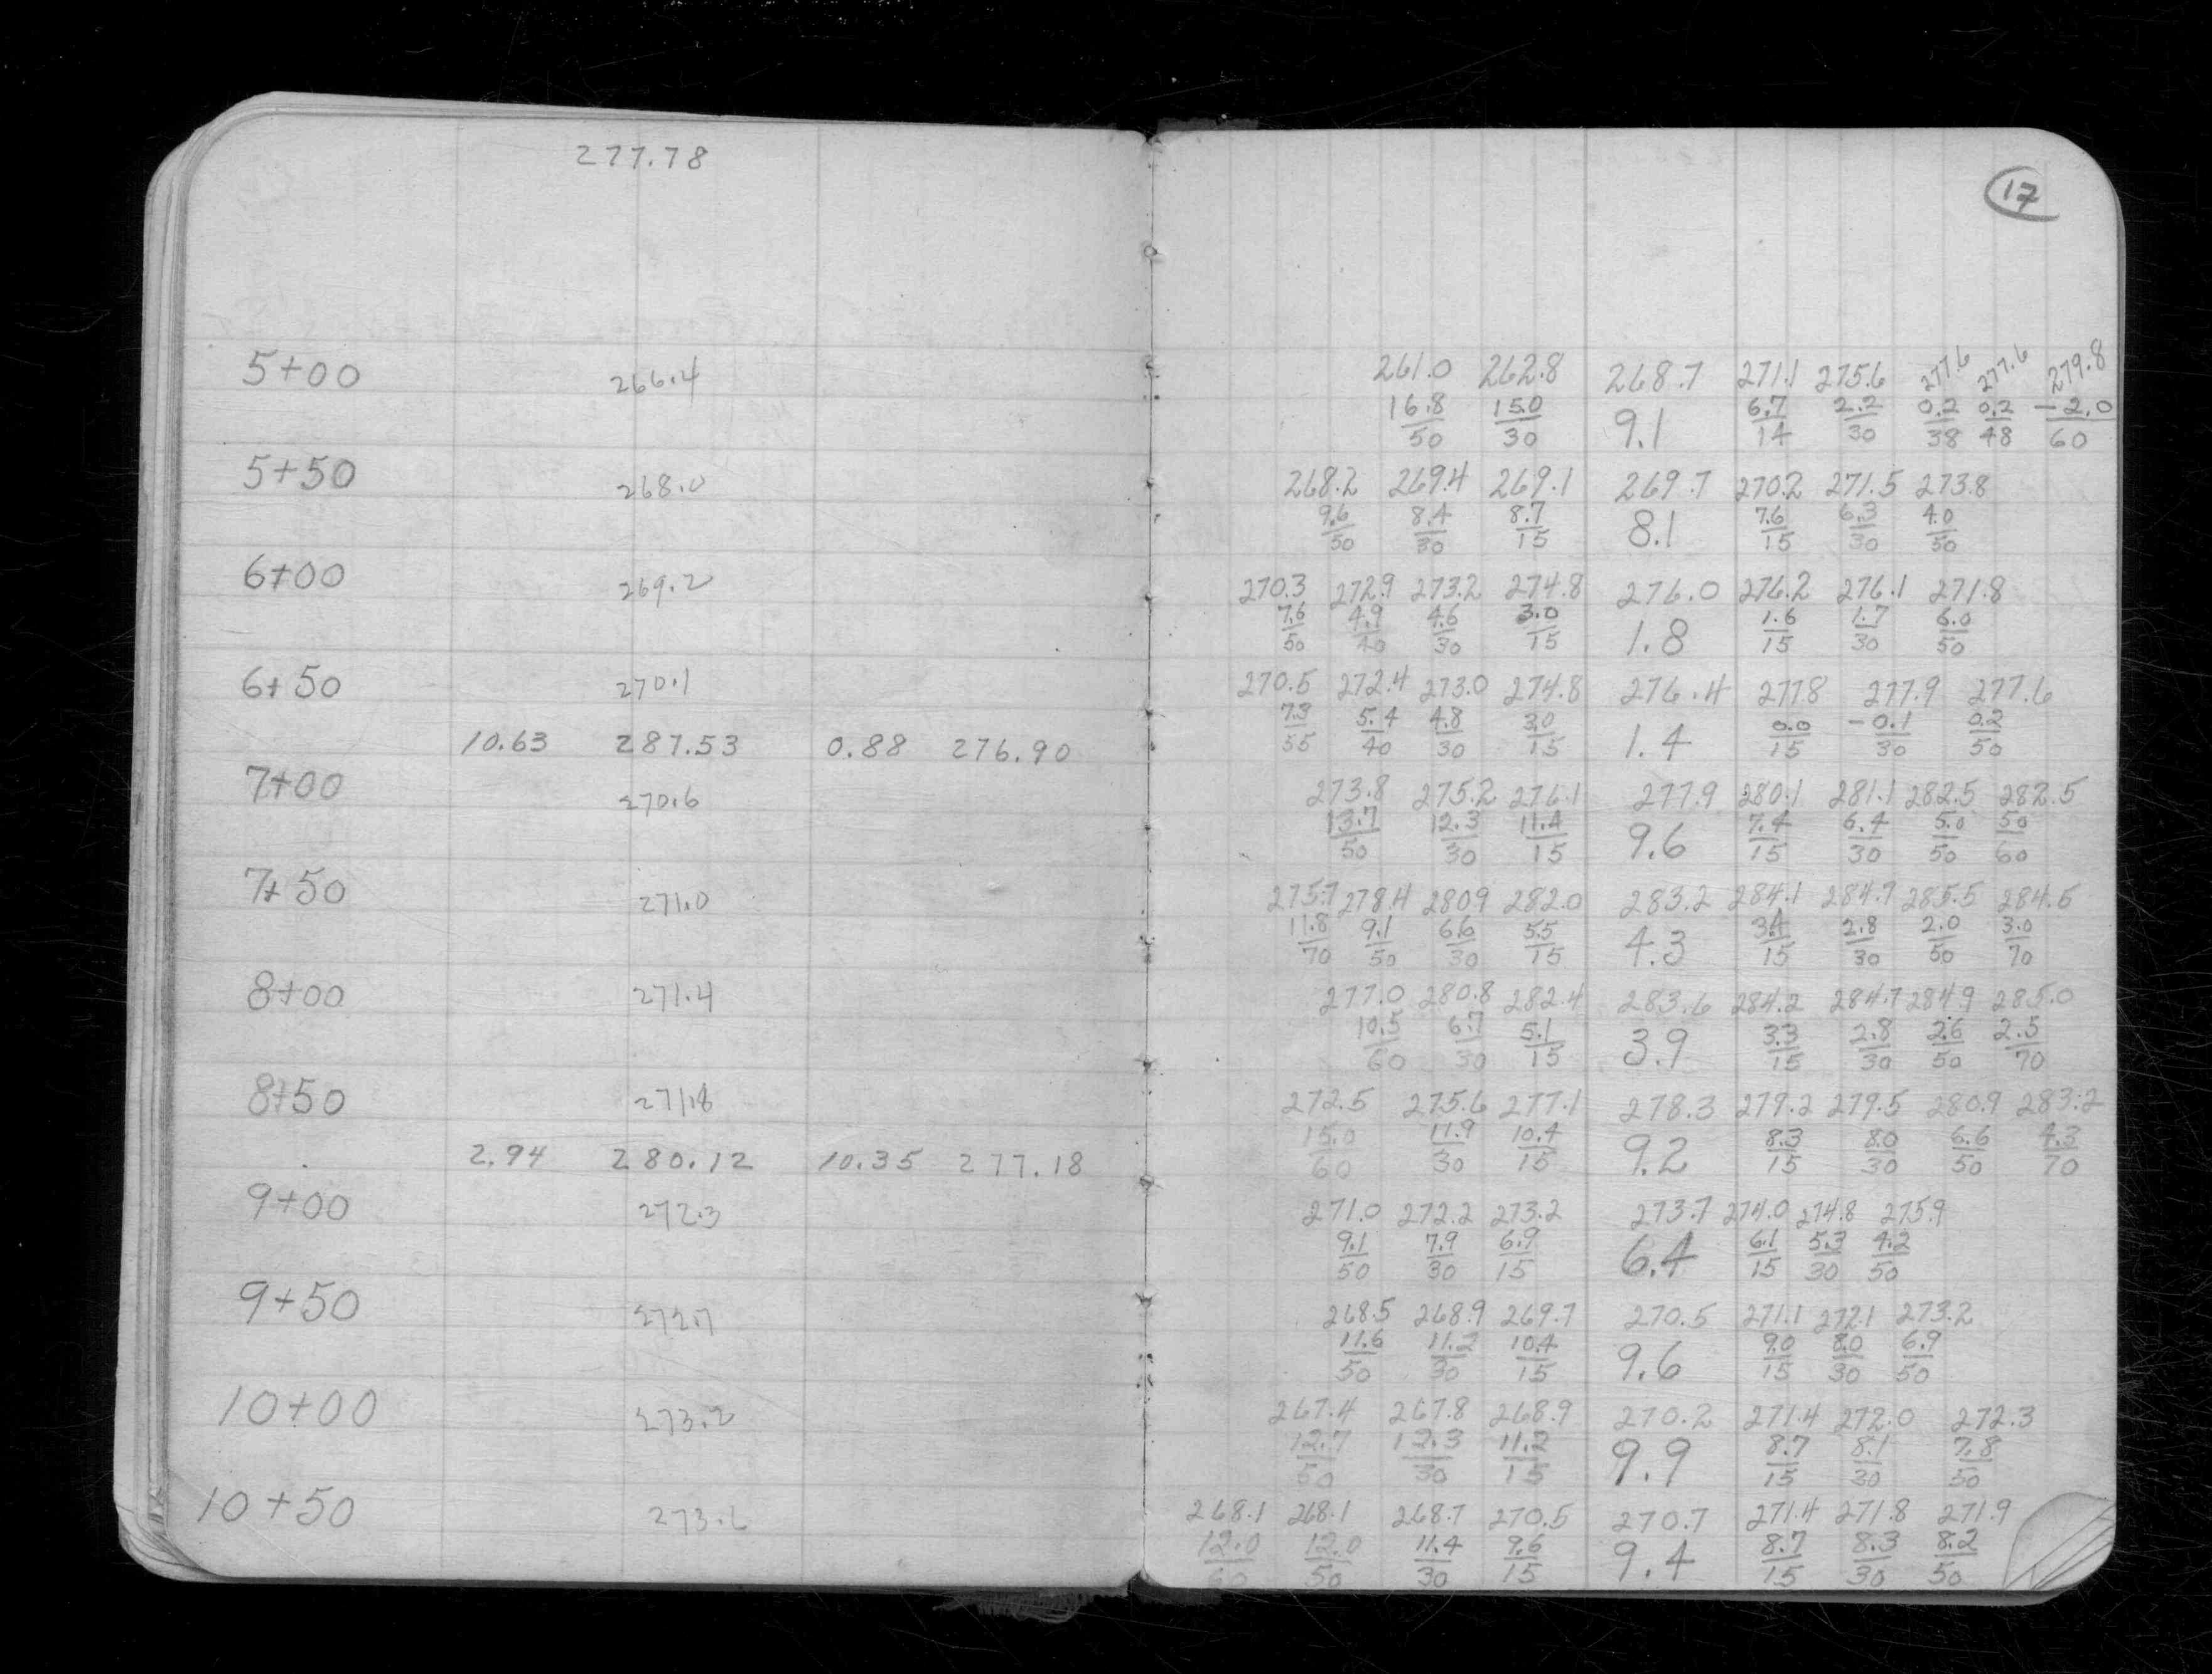 277.78
5+00 266.4
5+50 268.0
6+00 269.2
6+50 270.1
10.63 287.53 0.88 276.90
7+00 270.6
7+50 271.0
8+00 271.4
8+50 271.8
2.94 280.12 10.35 277.18
9+00 272.3
9+50 272.7
10+00 273.2
10+50 273.6
17
261.0 262.8 268.7 271.1 275.6 277.6 277.6 279.8
16.8 15.0 9.1 6.7 2.2 0.2 0.2 -2.0
50 30 14 30 38 48 60
268.2 269.4 269.1 269.7 270.2 271.5 273.8
9.6 8.4 8.7 8.1 7.6 6.3 4.0
50 30 15 15 30 50
270.3 272.9 273.2 274.8 276.0 276.2 276.1 271.8
7.6 4.9 4.6 3.0 1.8 1.6 1.7 6.0
50 40 30 15 15 30 50
270.5 272.4 273.0 274.8 276.4 277.8 277.9 277.6
7.3 5.4 4.8 3.0 1.4 0.0 -0.1 0.2
55 40 30 15 15 30 50
273.8 275.2 276.1 277.9 280.1 281.1 282.5 282.5
13.7 12.3 11.4 9.6 7.4 6.4 5.0 5.0
50 30 15 15 30 50 60
275.7 278.4 280.9 282.0 283.2 284.1 284.7 285.5 284.5
11.8 9.1 6.6 5.5 4.3 3.4 2.8 2.0 3.0
70 50 30 15 15 30 50 70
277.0 280.8 282.4 283.6 284.2 284.7 284.9 285.0
10.5 6.7 5.1 3.9 3.3 2.8 2.6 2.5
60 30 15 15 30 50 70
272.5 275.6 277.1 278.3 279.2 279.5 280.9 283.2
15.0 11.9 10.4 9.2 8.3 8.0 6.6 4.3
60 30 15 15 30 50 70
271.0 272.2 273.2 273.7 274.0 274.8 275.9
9.1 7.9 6.9 6.4 6.1 5.3 4.2
50 30 15 15 30 50
268.5 268.9 269.7 270.5 271.1 272.1 273.2
11.6 11.2 10.4 9.6 9.0 8.0 6.9
50 30 15 15 30 50
267.4 267.8 268.9 270.2 271.4 272.0 272.3
12.7 12.3 11.2 9.9 8.7 8.1 7.8
50 30 15 15 30 50
268.1 268.1 268.7 270.5 270.7 271.4 271.8 271.9
12.0 12.0 11.4 9.6 9.4 8.7 8.3 8.2
60 50 30 15 15 30 50